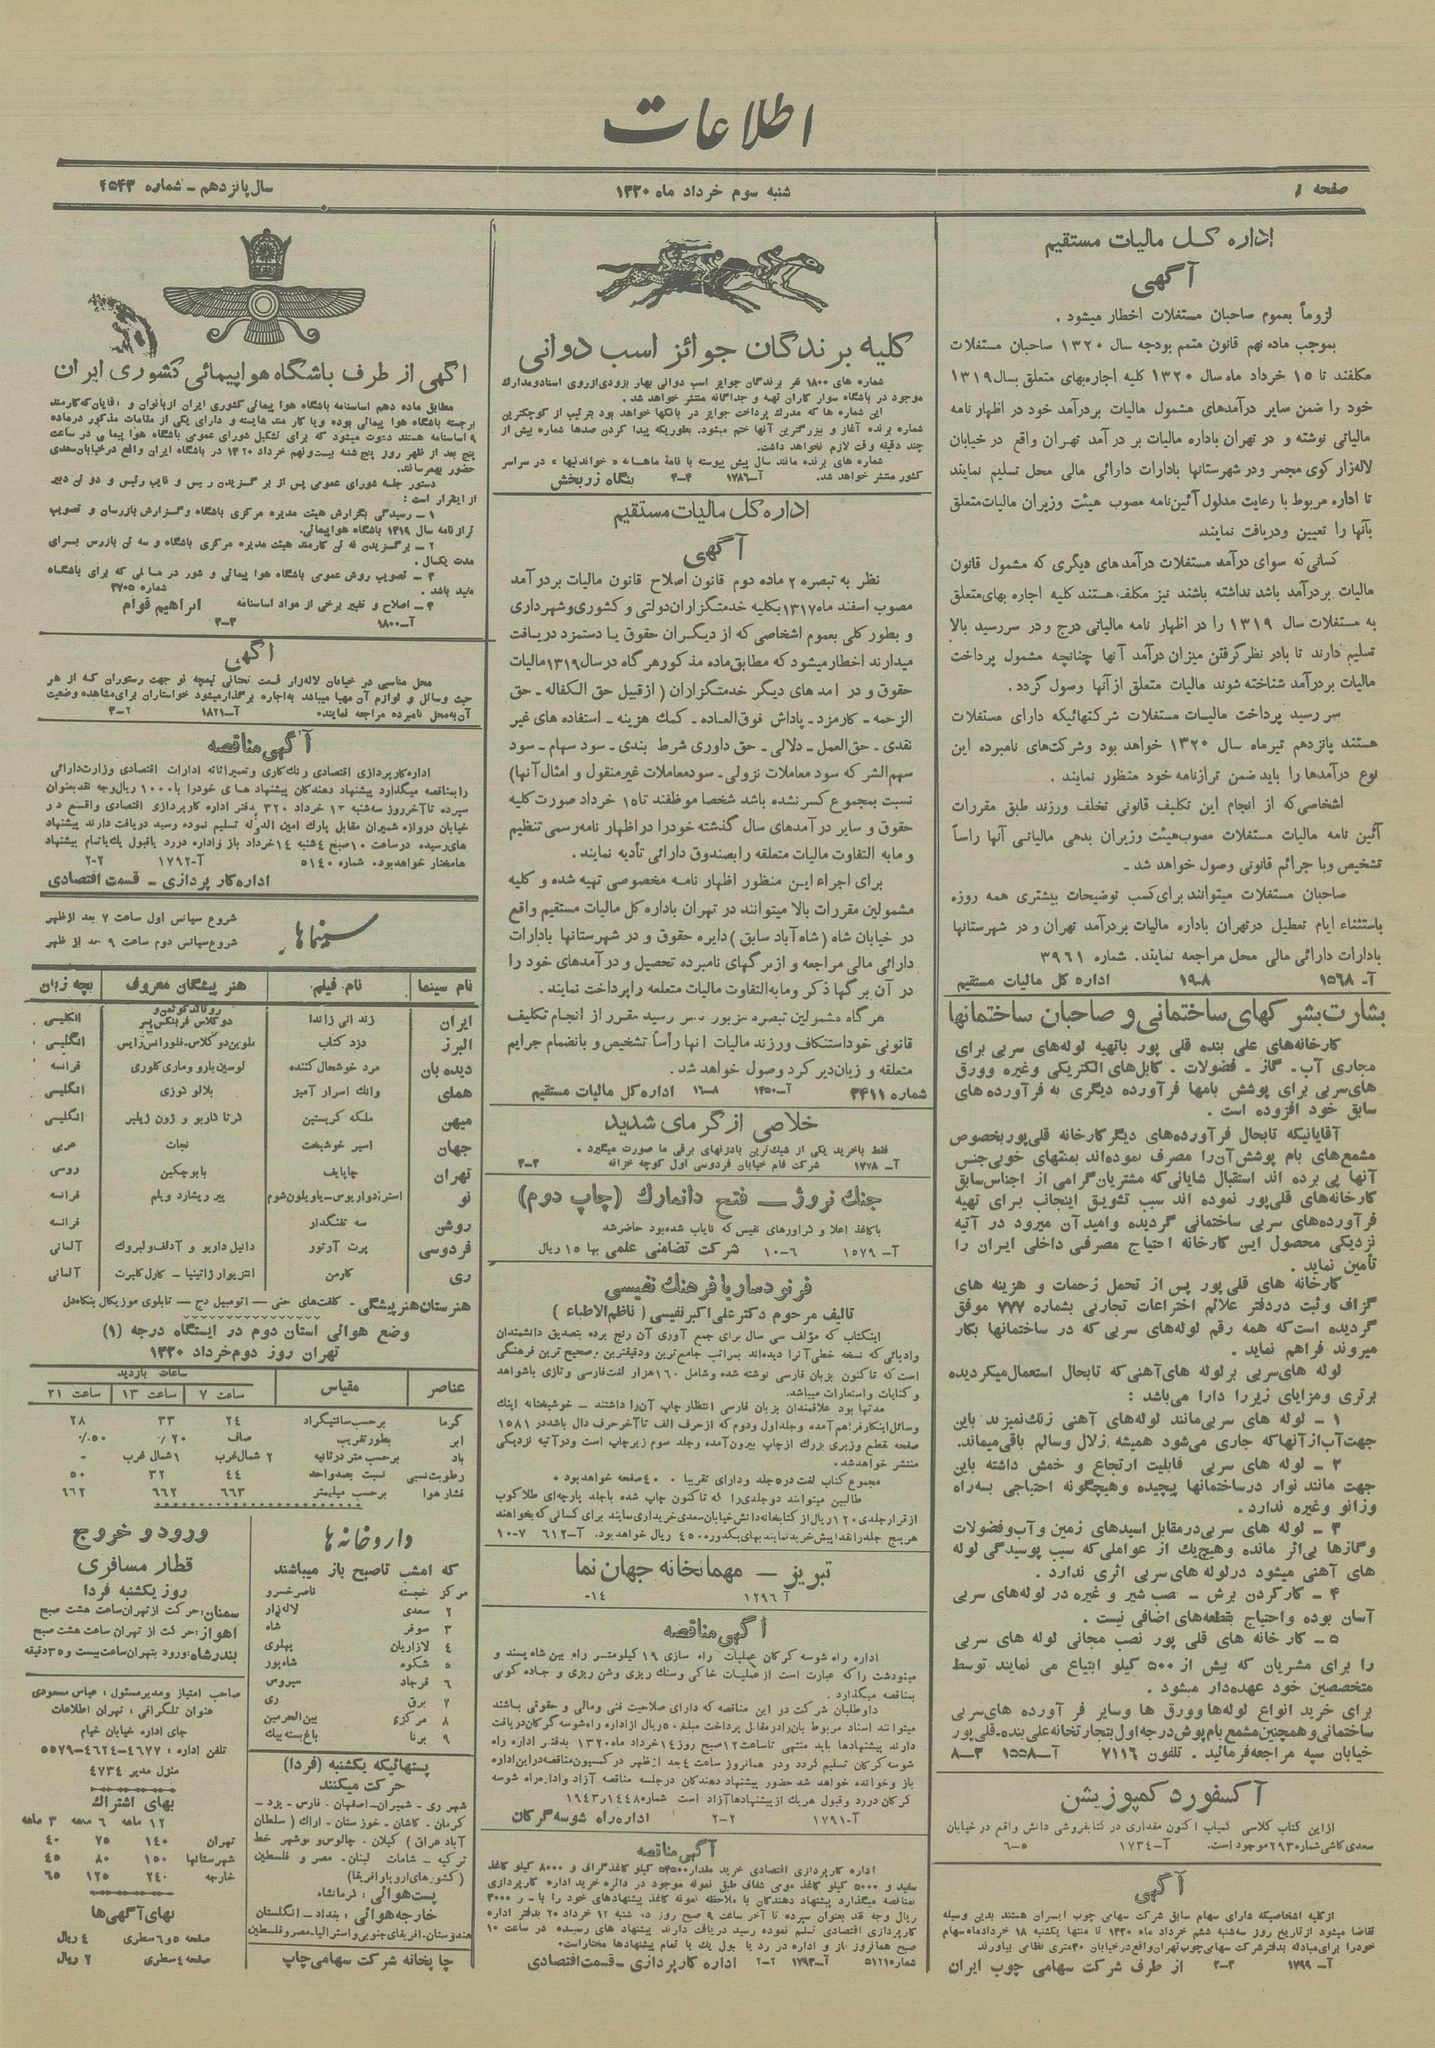 اطلاعات
صفحه ۸
شنبه سوم خرداد ماه ۱۳۲۰
سال پانزدهم ـ شماره ۴۵۴۳
اداره کل مالیات مستقیم
آگهی
لزوماً بعموم صاحبان مستغلات اخطار میشود .
بموجب ماده نهم قانون متمم بودجه سال ۱۳۲۰ صاحبان مستغلات
مکلفند تا ۱۵ خرداد ماه سال ۱۳۲۰ کلیه اجاره‌بهای متعلق بسال ۱۳۱۹
خود را ضمن سایر درآمدهای مشمول مالیات بردرآمد خود در اظهار نامه
مالیاتی نوشته و در تهران باداره مالیات بر درآمد تهران واقع در خیابان
لاله‌زار کوی مجمر ودر شهرستانها بادارات دارائی مالی محل تسلیم نمایند
تا اداره مربوط با رعایت مدلول آئین‌نامه مصوب هیئت وزیران مالیات‌متعلق
بآنها را تعیین ودریافت نمایند.
کسانی‌که سوای درآمد مستغلات درآمدهای دیگری که مشمول قانون
مالیات بردرآمد باشد نداشته باشند نیز مکلف‌هستند کلیه اجاره بهای‌متعلق
به مستغلات سال ۱۳۱۹ را در اظهار نامه مالیاتی درج و در سررسید بالا
تسلیم دارند تا بادر نظرگرفتن میزان درآمد آنها چنانچه مشمول پرداخت
مالیات بردرآمد شناخته شوند مالیات متعلق ازآنها وصول گردد .
سر رسید پرداخت مالیات مستغلات شرکتهائیکه دارای مستغلات
هستند پانزدهم تیرماه سال ۱۳۲۰ خواهد بود وشرکت‌های نامبرده این
نوع درآمدها را باید ضمن ترازنامه خود منظور نمایند .
اشخاصی‌که از انجام این تکلیف قانونی تخلف ورزند طبق مقررات
آئین نامه مالیات مستغلات مصوب‌هیئت وزیران بدهی مالیاتی آنها رأساً
تشخیص وبا جرائم قانونی وصول خواهد شد ـ
صاحبان مستغلات میتوانند برای‌کسب توضیحات بیشتری همه روزه
باستثناء ایام تعطیل درتهران باداره مالیات بردرآمد تهران و در شهرستانها
بادارات دارائی مالی محل مراجعه نمایند. شماره ۳۹۶۱
آـ ۱۵۶۸ ۸ـ۱۹ اداره کل مالیات مستقیم
بشارت‌بشرکتهای‌ساختمانی‌و صاحبان ساختمانها
کارخانه‌های علی بنده قلی پور باتهیه لوله‌های سربی برای
مجاری آب ـ گاز ـ فضولات ـ کابل‌های الکتریکی وغیره وورق
های‌سربی برای پوشش بامها فرآورده دیگری به فرآورده های
سابق خود افزوده است .
آقایانیکه تابحال فرآورده‌های دیگرکارخانه قلی‌پوربخصوص
مشمع‌های بام پوش‌آن‌را مصرف نموده‌اند بمنتهای خوبی‌جنس
آنها پی برده اند استقبال شایانی‌که مشتریان‌گرامی از اجناس‌سابق
کارخانه‌های قلی‌پور نموده اند سبب تشویق اینجانب برای تهیه
فرآورده‌های سربی ساختمانی گردیده وامیدآن میرود در آتیه
نزدیکی محصول این کارخانه احتیاج مصرفی داخلی ایران را
تأمین نماید .
کارخانه های قلی پور پس از تحمل زحمات و هزینه های
گزاف وثبت دردفتر علائم اختراعات تجارتی بشماره ۷۷۷ موفق
گردیده است‌که همه رقم لوله‌های سربی که در ساختمانها بکار
میروند فراهم نماید .
لوله های‌سربی برلوله های‌آهنی‌که تابحال استعمال‌میکردیده
برتری ومزایای زیررا دارا می‌باشد :
۱ ـ لوله های سربی‌مانند لوله‌های آهنی زنگ‌نمیزند باین
جهت‌آب‌ازآنهاکه جاری می‌شود همیشه زلال وسالم باقی‌میماند.
۲ ـ لوله های سربی قابلیت ارتجاع و خمش داشته باین
جهت مانند نوار درساختمانها پیچیده وهیچگونه احتیاجی بسه‌راه
وزانو وغیره ندارد .
۳ ـ لوله های سربی‌درمقابل اسیدهای زمین وآب‌وفضولات
وگازها بی‌اثر مانده وهیچ‌یک از عواملی‌که سبب پوسیدگی لوله
های آهنی میشود درلوله های سربی اثری ندارد .
۴ ـ کارکردن برش ـ نصب شیر و غیره در لوله‌های سربی
آسان بوده واحتیاج بقطعه‌های اضافی نیست .
۵ ـ کار خانه های قلی پور نصب مجانی لوله های سربی
را برای مشتریان که بیش از ۵۰۰ کیلو ابتیاع می نمایند توسط
متخصصین خود عهده‌دار میشود .
برای خرید انواع لوله‌ها وورق ها وسایر فر آورده های‌سربی
ساختمانی‌وهمچنین‌مشمع بام‌پوش‌درجه‌اول‌بتجارتخانه‌علی‌بنده‌ـقلی‌پور
خیابان سپه مراجعه‌فرمائید . تلفون ۷۱۱۶ آـ۱۵۵۸ ۳ـ۸
آکسفورد کمپوزیشن
ازاین کتاب کلاسی کمیاب اکنون مقداری در کتابفروشی دانش واقع در خیابان
سعدی‌کاشی‌شماره۲۹۳موجود است. آـ۱۷۳۴ ۵ـ۶
آگهی
ازکلیه اشخاصیکه دارای سهام سابق شرکت سهامی چوب ایسران هستند بدین وسیله
تقاضا میشود ازتاریخ روز سه‌شنبه ششم خرداد ماه ۱۳۲۰ تا منتها یکشنبه ۱۸ خردادماه‌سهام
خودرا برای‌مبادله بدفترشرکت سهامی‌چوب‌تهران‌واقع‌درخیابان ۳۰متری نظامی بیاورند
آـ ۱۷۹۹ ۲ـ۳ از طرف شرکت سهامی چوب ایران
کلیه برندگان جوائز اسب دوانی
شماره های ۱۸۰۰ نفر برندگان جوایز اسب دوانی بهار بزودی‌ازروی اسنادومدارک
موجود در باشگاه سوار کاران تهیه و جداگانه منتشر خواهد شد .
این شماره ها که مدرک پرداخت جوایز در بانکها خواهد بود بترتیب از کوچکترین
شماره برنده آغاز و ببزرگترین آنها ختم میشود. بطوریکه پیدا کردن صدها شماره بیش از
چند دقیقه وقت لازم نخواهد داشت.
شماره های برنده مانند سال پیش پیوسته با نامهٔ ماهیانه « خواندنیها » در سراسر
کشور منتشر خواهد شد. آـ۱۷۸۶ ۳ـ۳ بنگاه زربخش
اداره کل مالیات مستقیم
آگهی
نظر به تبصره ۲ ماده دوم قانون اصلاح قانون مالیات بردرآمد
مصوب اسفند ماه‌۱۳۱۷بکلیه خدمتگزاران‌دولتی و کشوری‌وشهرداری
و بطورکلی بعموم اشخاصی که از دیگران حقوق یا دستمزد دریافت
میدارند اخطارمیشودکه مطابق‌ماده مذکورهرگاه درسال۱۳۱۹مالیات
حقوق و درآمدهای دیگر خدمتگزاران (ازقبیل حق الکفاله ـ حق
الزحمه ـ کارمزد ـ پاداش فوق‌العاده ـ کمک هزینه ـ استفاده های غیر
نقدی ـ حق‌العمل ـ دلالی ـ حق داوری شرط بندی ـ سود سهام ـ سود
سهم‌الشرکه سود معاملات نزولی ـ سودمعاملات غیرمنقول و امثال آنها)
نسبت بمجموع کسرنشده باشد شخصا موظفند تا۱۵ خرداد صورت کلیه
حقوق و سایر درآمدهای سال گذشته خودرا دراظهار نامه‌رسمی تنظیم
و مابه التفاوت مالیات متعلقه رابصندوق دارائی تأدیه نمایند .
برای اجراء این منظور اظهار نامه مخصوصی تهیه شده و کلیه
مشمولین مقررات بالا میتوانند در تهران باداره کل مالیات مستقیم واقع
در خیابان شاه (شاه‌آباد سابق) دایره حقوق و در شهرستانها بادارات
دارائی مالی مراجعه و ازبرگهای نامبرده تحصیل و درآمدهای خود را
در آن برگها ذکر ومابه‌التفاوت مالیات متعلقه راپرداخت نمایند .
هرگاه مشمولین تبصره مزبور در سر رسید مقرر از انجام تکلیف
قانونی خوداستنکاف ورزند مالیات آنها رأساً تشخیص و بانضمام جرایم
متعلقه و زیان‌دیر کرد وصول خواهد شد .
شماره ۳۴۱۱ آـ۱۳۵۰ ۸ـ۱۶ اداره کل مالیات مستقیم
خلاصی از گرمای شدید
فقط باخرید یکی از شیک‌ترین بادزنهای برقی ما صورت میگیرد .
آـ ۱۷۷۸ شرکت فام خیابان فردوسی اول کوچه خزانه ۳ـ۳
جنگ نروژ ـ فتح دانمارک (چاپ دوم)
باکاغذ اعلا و گراورهای نفیس که نایاب شده‌بود حاضرشد
آـ ۱۵۷۹ ۶ـ۱۰ شرکت تضامنی علمی بها ۱۵ ریال
فرنودساریا فرهنگ نفیسی
تالیف مرحوم دکترعلی‌اکبر نفیسی (ناظم‌الاطباء)
اینکتاب که مؤلف سی سال برای جمع آوری آن رنج برده بتصدیق دانشمندان
وادبائی که نسخه خطی‌آنرا دیده‌اند بمراتب جامع‌ترین ودقیقترین وصحیح ترین فرهنگی
است‌که تاکنون بزبان فارسی نوشته شده وشامل ۱۶۰هزار لغت‌فارسی وتازی باشواهد
وکنایات واستعارات میباشد.
مدتها بود علاقمندان بزبان فارسی انتظار چاپ آن‌را داشتند ـ خوشبختانه اینک
وسائل‌اینکارفراهم‌آمده وجلداول‌ودوم که ازحرف الف تاآخرحرف دال باشددر ۱۵۸۱
صفحه قطع وزیری بزرگ ازچاپ بیرون‌آمده وجلد سوم زیرچاپ است ودرآتیه نزدیکی
منتشر خواهدشد.
طالبین میتوانند دوجلدی‌را که تاکنون چاپ شده باجلد پارچه‌ای طلاکوب
ازقرارجلدی۱۲۰ریال‌ازکتابخانه‌دانش‌خیابان‌سعدی‌خریداری‌سایند برای کسانی که‌بخواهند
هرپنج جلدرانقداپیش‌خریدنمایند بهای‌یکدوره۴۵۰ ریال خواهدبود. آـ۶۱۲ ۷ـ۱۰
تبریز ـ مهمانخانه جهان نما
آ ۱۲۹۶ ۱۴ـ
آگهی مناقصه
اداره راه شوسه گرگان عملیات راه سازی ۱۹ کیلومتر راه بین شاه‌پسند و
مینودشت را که عبارت است ازعملیات خاکی وسنگ ریزی وشن ریزی و جاده کوبی
بمناقصه میگذارد .
داوطلبان شرکت در این مناقصه که دارای صلاحیت فنی ومالی و حقوقی باشند
میتوانند اسناد مربوط بآن‌رادرمقابل پرداخت مبلغ۵۰ریال ازاداره راه‌شوسه گرگان‌دریافت
دارند پیشنهادها باید منتهی تاساعت ۱۲صبح روز۱۴خرداد ماه۱۳۲۰ بدفتر اداره راه
شوسه‌گرگان تسلیم گردد ودر همانروز ساعت ۴ بعد ازظهر درکمیسیون‌مناقصه‌دراین‌اداره
باز وخوانده خواهد شد حضور پیشنهاد دهندگان درجلسه مناقصه آزاد واداره‌راه شوسه
گرگان دررد وقبول هریک ازپیشنهادهاآزاد است شماره۱۴۴۸ر۱۹۴۳
آـ۱۷۹۱ ۲ـ۲ اداره راه شوسه گرگان
آگهی مناقصه
سفید و ۵۰۰۰ کیلو کاغذ مومی شفاف طبق نمونه موجود در دائره خرید اداره کارپردازی
ریال وجه نقد بعنوان سپرده تا آخر ساعت ۹ صبح روز دو شنبه ۱۲ خرداد ۲۰ بدفتر اداره
کارپردازی اقتصادی تسلیم نموده رسید دریافت دارند پیشنهاد های رسیده در ساعت ۱۰
صبح همانروز باز و اداره در رد یا قبول یک یا تمام پیشنهادها مختاراست.
شماره۵۱۲۱ آـ۱۷۹۳ ۲ـ۲ اداره کارپردازی ـ قسمت‌اقتصادی
آگهی از طرف باشگاه هواپیمائی کشوری ایران
مطابق ماده دهم اساسنامه باشگاه هوا پیمائی کشوری ایران ازبانوان و آقایان‌که‌کارمند
برجسته باشگاه هوا پیمائی بوده ویا کار مند شایسته و دارای یکی از مقامات مذکور درماده
۹ اساسنامه هستند دعوت میشود که برای تشکیل شورای عمومی باشگاه هوا پیمائی در ساعت
پنج بعد از ظهر روز پنج شنبه بیست‌ونهم خرداد ۱۳۲۰ در باشگاه ایران واقع درخیابان‌سعدی
حضور بهمرسانند.
دستور جلسه شورای عمومی پس از بر گزیدن رییس و نایب رئیس و دو تن دبیر
از اینقرار است :
۱ ـ رسیدگی بگزارش هیئت مدیره مرکزی باشگاه وگزارش بازرسان و تصویب
ترازنامه سال ۱۳۱۹ باشگاه هواپیمائی.
۲ ـ برگزیدن نه تن کارمند هیئت مدیره مرکزی باشگاه و سه تن بازرس برای
مدت یکسال.
۳ ـ تصویب روش عمومی باشگاه هوا پیمائی و شور در مسائلی که برای باشگاه
مفید باشد . شماره ۳۷۰۵
۴ ـ اصلاح و تغییر برخی از مواد اساسنامه ابراهیم قوام
آـ۱۸۰۰ ۲ـ۳
آگهی
محل مناسبی در خیابان لاله‌زار قسمت تحتانی تیمچه نو جهت رستوران که از هر
حیث وسائل و لوازم آن مهیا میباشد به‌اجاره برگذارمیشود خواستاران برای‌مشاهده وضعیت
آن‌به‌محل نامبرده مراجعه نمایند. آـ۱۸۲۱ ۲ـ۳
آگهی مناقصه
اداره‌کارپردازی اقتصادی رنگ‌کاری وتعمیراثاثه ادارات اقتصادی وزارت‌دارائی
رابمناقصه میگذارد پیشنهاد دهندگان پیشنهاد های خودرا با۱۰۰۰ ریال‌وجه نقدبعنوان
خیابان دروازه شمیران مقابل پارک امین الدوله تسلیم نموده رسید دریافت دارند پیشنهاد
هامختار خواهدبود. شماره ۵۱۴۰ آـ۱۷۹۲ ۲ـ۲
اداره کار پردازی ـ قسمت اقتصادی
سینماها
شروع سیانس اول ساعت ۷ بعد ازظهر
شروع سیانس دوم ساعت ۹ بعد از ظهر
نام سینما نام فیلم هنر پیشگان معروف بچه زبان
ایران زندانی زاندا رونالدکولمن‌و دوگلاس فربنکس‌پسر انگلیسی
البرز دزد کتاب ملوین‌دوگلاس‌ـفلورانس‌رایس انگلیسی
دیده بان مرد خوشحال کننده لوسین‌بارو وماری‌گلوری فرانسه
همای وانگ اسرار آمیز بلالو گوزی انگلیسی
میهن ملکه کریستین گرتا گاربو و ژون ژیلبر انگلیسی
جهان اسیر خوشبخت نجات عربی
تهران چاپایف بابوچکین روسی
نو استرندواریوس‌ـیاویلون‌شوم پیر ریشارد ویلم فرانسه
روشن سه تفنگدار فرانسه
فردوسی پرت آرتور دانیل داریو و آدلف‌ولبروک آلمانی
ری کارمن آلمانی
هنرستان‌هنرپیشگی‌ـ کلفت‌های حتی ـ اتومبیل دج ـ تابلوی موزیکال بنگاه‌دل
وضع هوائی استان دوم در ایستگاه درجه (۱)
تهران روز دوم‌خرداد ۱۳۲۰
عناصر مقیاس ساعات بازدید
ساعت ۷ ساعت ۱۳ ساعت ۲۱
گرما برحسب‌سانتیگراد ۲۴ ۳۳ ۲۸
ابر بطورتقریب صاف ۲۰٪ ۵۰٪
باد برحسب متردرثانیه ۲ شمال‌غرب ۱شمال غرب ـ
رطوبت‌نسبی نسبت بصدواحد ۴۴ ۳۲ ۵۰
فشار هوا برحسب میلیمتر ۶۶۳ ۶۶۲ ۶۶۲
داروخانه‌ها
که امشب تاصبح باز میباشند
مرکز خجسته ناصرخسرو
۲ سعدی لاله‌زار
۳ سوفر شاه
۴ لازاریان پهلوی
۵ شکوه شاه‌پور
۶ فرجاد سیروس
۷ برق ری
۸ مرکزی بین‌الحرمین
۹ برنا باغ‌سته‌بیک
پستهائیکه یکشنبه (فردا)
حرکت میکنند
شهر ری ـ شمیران ـ اصفهان ـ فارس ـ یزد ـ
کرمان ـ کاشان ـ خوزستان ـ اراک (سلطان
آباد عراق) گیلان ـ چالوس‌و نوشهر خط
ترکیه ـ شامات لبنان ـ مصر و فلسطین
(کشورهای‌اروپاوافریقا)
پست‌هوائی : کرمانشاه
خارجه‌هوائی : بغداد ـ انگلستان
هندوستان‌ـافریقای‌جنوبی‌واسترالیاـمصروفلسطین
چاپخانه شرکت سهامی‌چاپ
ورود و خروج
قطار مسافری
روز یکشنبه فردا
سمنان: حرکت ازتهران‌ساعت هشت صبح
اهواز: حرکت از تهران ساعت هشت صبح
بندرشاه:ورود بتهران‌ساعت‌بیست و۳۵دقیقه
صاحب امتیاز ومدیرمسئول : عباس مسعودی
عنوان تلگرافی : تهران اطلاعات
جای اداره خیابان خیام
تلفن اداره : ۴۶۷۷ـ۴۶۲۴ـ۵۵۷۹
منزل مدیر ۴۷۳۴
بهای اشتراک
۱۲ ماهه ۶ ماهه ۳ ماهه
تهران ۱۴۰ ۷۵ ۴۰
شهرستانها ۱۵۰ ۸۰ ۴۵
خارجه ۲۴۰ ۱۲۵ ۶۵
بهای آگهی‌ها
صفحه ۵و۶ سطری ۴ ریال
صفحه ۴ سطری ۲ ریال